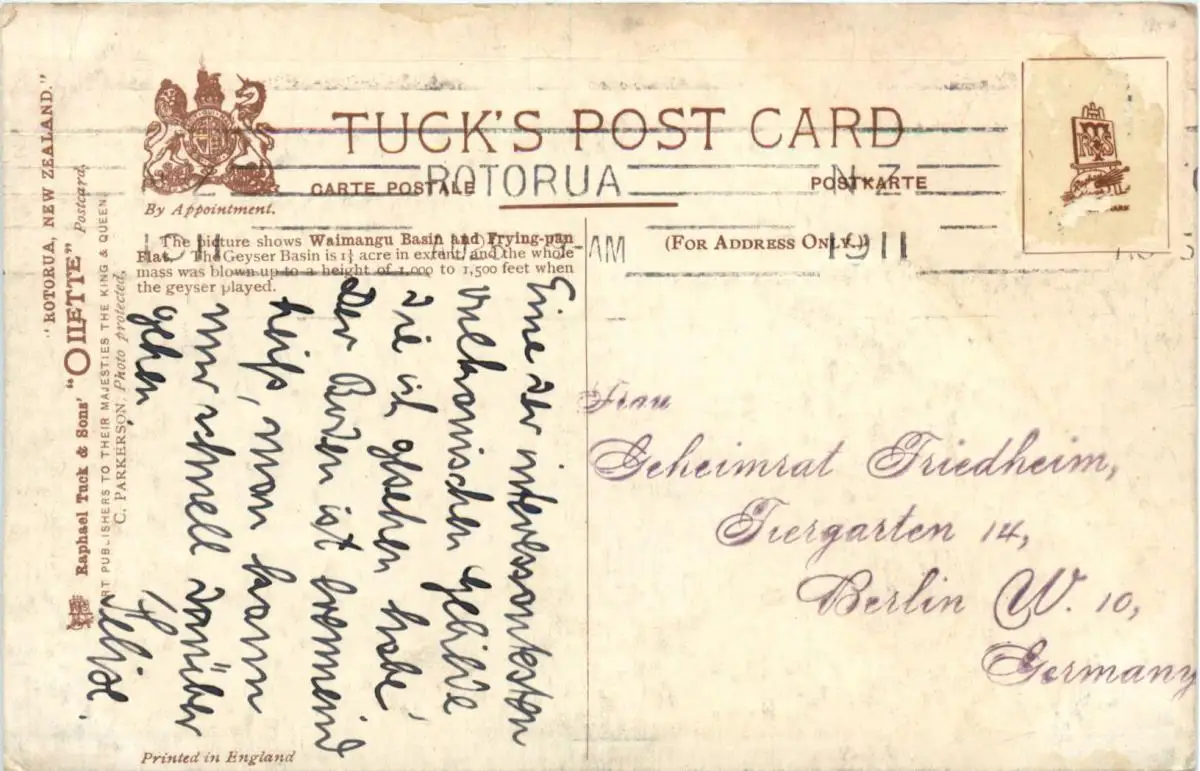 "ROTORUA, NEW ZEALAND."
Raphael Tuck & Sons' "OILETTE" Postcard,
ART PUBLISHERS TO THEIR MAJESTIES THE KING & QUEEN.
C. PARKERSON. Photo protected.
By Appointment.
TUCK'S POST CARD
CARTE POSTALE
POSTKARTE
ROTORUA N.Z.
1911
AM
1911
The picture shows Waimangu Basin and Frying-pan
Flat. The Geyser Basin is 1¾ acre in extent, and the whole
mass was blown up to a height of 1,000 to 1,500 feet when
the geyser played.
(FOR ADDRESS ONLY.)
Eine der interessantesten
vulkanischen Gebilde
die ich gesehen habe,
Der Boden ist brennend
heiß, man kann
nur schnell darüber
gehen.
Frau
Geheimrat Friedheim,
Tiergarten 14,
Berlin W. 10,
Germany
Printed in England